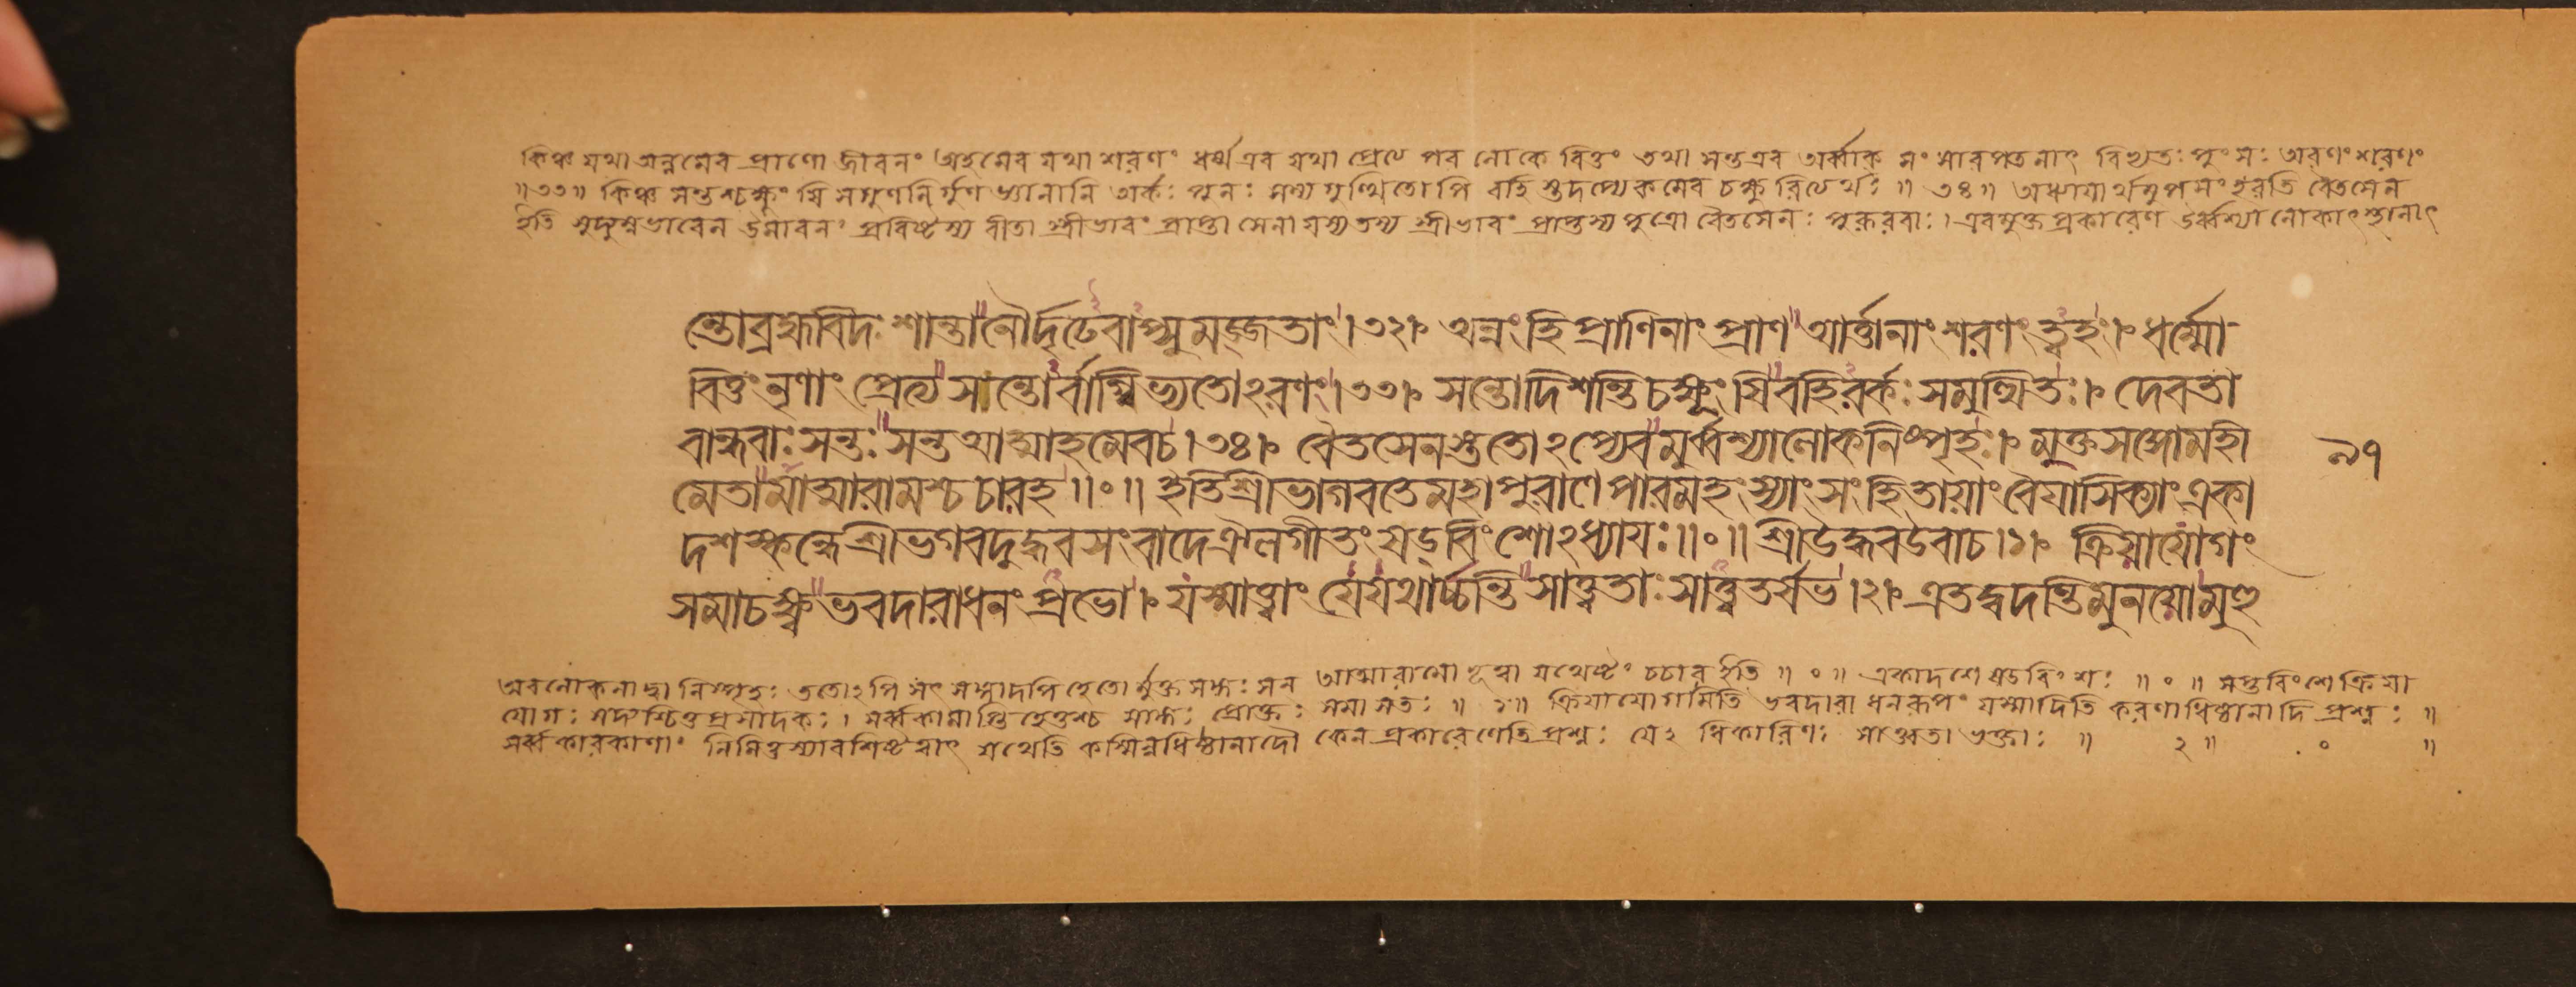 কিঞ্চ যথা অন্নমেব প্রাণো জীবনং অহমেব যথা শরণং ধর্ম্ম এব যথা প্রেত্য পর লোকে বিত্তং তথা সন্ত এব অর্ব্বাক্ সংসারপতনাৎ বিভ্যতঃ পুংসঃ অরণং শরণং
॥ ৩৩ ॥ কিঞ্চ সন্তশ্চক্ষুংষি সগুণনির্গুণ জ্ঞানানি অর্কঃ পুনঃ সম্যগুত্থিতোপি বহিস্তদপ্যেকমেব চক্ষুরিত্যর্থঃ ॥ ৩৪ ॥ অধ্যায়ার্থমুপসংহরতি বৈতসেন
ইতি সুদ্যুম্নভাবেন উমাবনং প্রবিষ্টস্য বীতা স্ত্রীভাবং প্রাপ্তা সেনা যস্য তস্য স্ত্রীভাবং প্রাপ্তস্য পুত্রো বৈতসেনঃ পুরূরবাঃ। এবমুক্ত প্রকারেণ উর্ব্বশ্যা লোকাৎ স্থানাৎ
ন্তোব্রহ্মবিদঃ শান্তা নৌর্দৃঢেবাপ্সু মজ্জতাং। ৩২। অন্নং হি প্রাণিনাং প্রাণ আর্ত্তানাং শরণং ত্বহং। ধর্ম্মো
বিত্তং নৃণাং প্রেত্য সন্তোর্বাগ্বিভ্যতোঽরণং। ৩৩। সন্তোদিশন্তি চক্ষূংষি বহিরর্কঃ সমুত্থিতঃ। দেবতা
বান্ধবাঃ সন্তঃ সন্ত আত্মাহমেব চ। ৩৪। বৈতসেনস্ততোঽপ্যেবমুর্ব্বশ্যালোকনিস্পৃহঃ। মুক্তসঙ্গোমহী
মেতামাত্মারামশ্চচারহ॥ ০ ॥ ইতি শ্রীভাগবতে মহাপুরাণে পারমহংস্যাং সংহিতায়াং বৈয়াসিক্যাং একা
৯৭
দশস্কন্ধে শ্রীভগবদুদ্ধবসংবাদে ঐলগীতং ষড্বিংশোঽধ্যায়ঃ॥ ০ ॥ শ্রীউদ্ধবউবাচ। ১। ক্রিয়াযোগং
সমাচক্ষ্ব ভবদারাধনং প্রভো। যস্মাত্ত্বাং যে যথার্চ্চন্তি সাত্ত্বতাঃ সাত্ত্বতর্ষভ। ২। এতদ্বদন্তি মুনয়োমুহু
অবলোকনাদ্বা নিস্পৃহঃ ততোঽপি সৎ সঙ্গাদপি হেতোর্মুক্ত সঙ্গঃ সন আত্মারামো ভূত্বা যথেষ্টং চচার ইতি ॥ ০ ॥ একাদশে ষড়বিংশঃ ॥ ০ ॥ সপ্তবিংশে ক্রিয়া
যোগঃ সদ্যশ্চিত্ত প্রসাদকঃ। সর্ব্বকামাপ্তি হেতুশ্চ সাঙ্গঃ প্রোক্তঃ সমাসতঃ ॥ ১ ॥ ক্রিয়াযোগমিতি ভবদারাধনরূপং যস্মাদিতি করণাধিষ্ঠানাদি প্রশ্নঃ ॥
সর্ব্বকারকাণাং নিমিত্তস্যাবশিষ্টত্বাৎ যথেতি কস্মিন্নধিষ্ঠানাদৌ কেন প্রকারেণেতি প্রশ্নঃ যেঽ ধিকারিণঃ সাত্ত্বতা ভক্তাঃ ॥ ২ ॥ ০ ॥